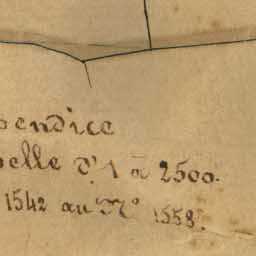 pendice
elle d'1 à 2500.
1542 au N° 1558.